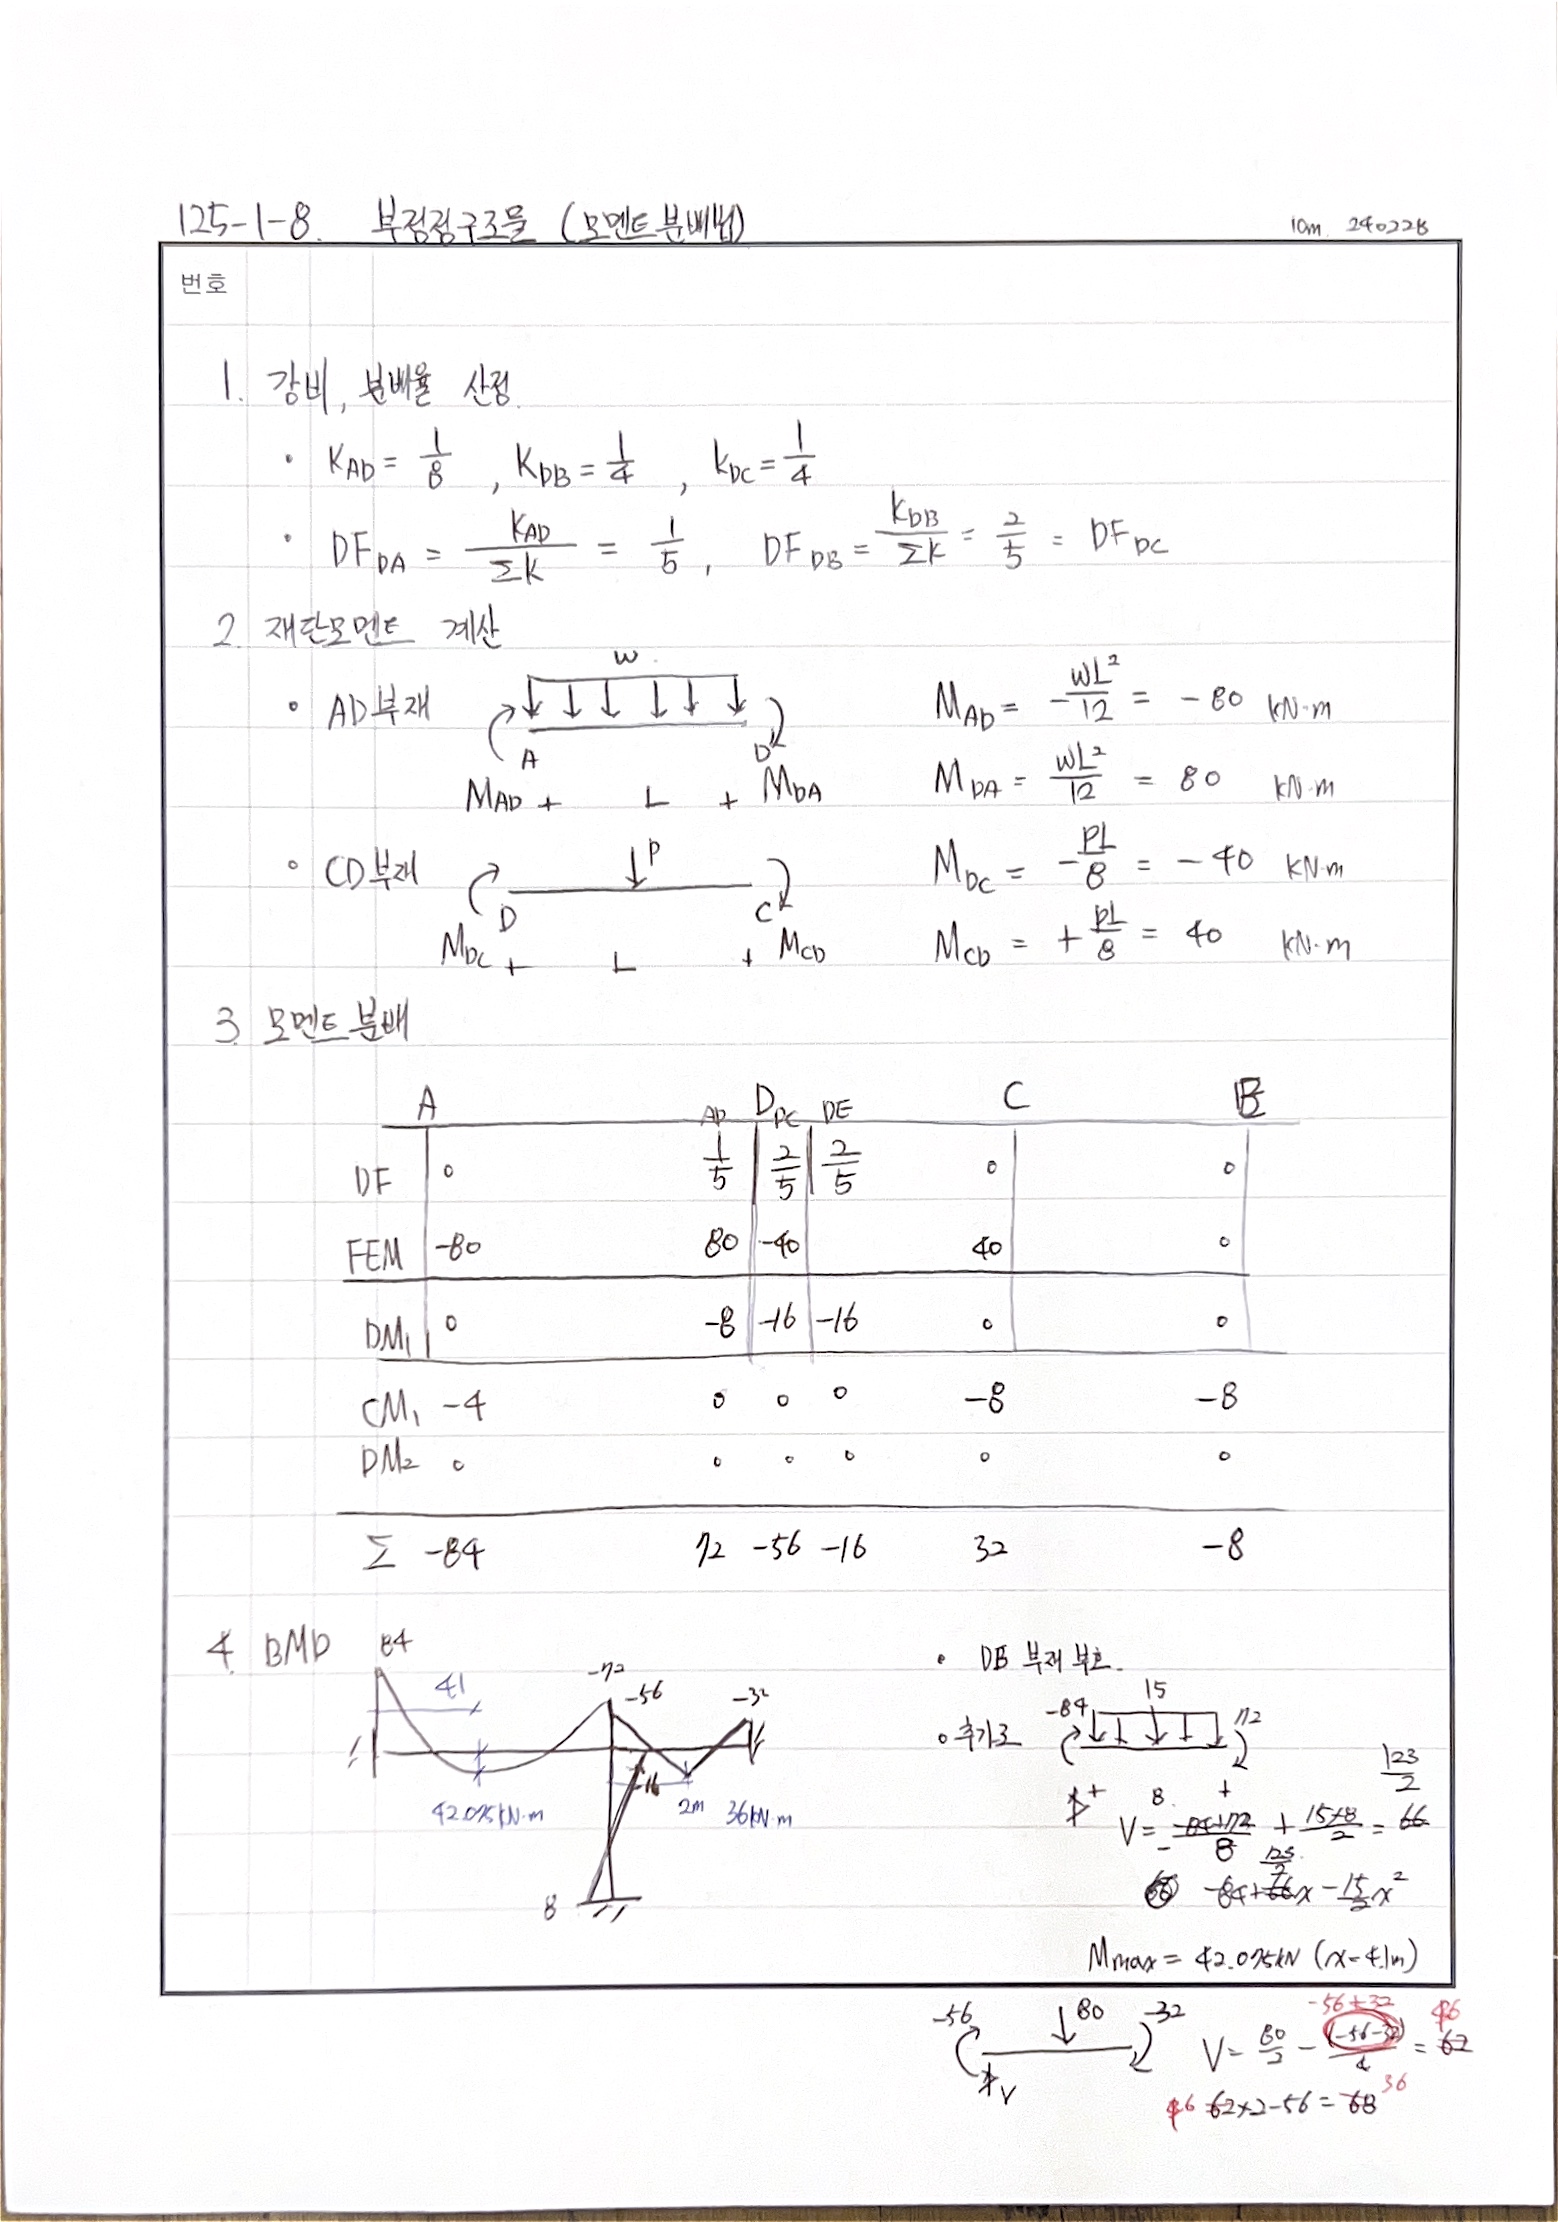 125-1-8. 부정정구조물 (모멘트분배법) 10m 240228
번호
1. 강비, 분배율 산정.
• K_AD = 1/8 , K_DB = 1/4 , k_DC = 1/4
• DF_DA = K_AD/ΣK = 1/5 , DF_DB = K_DB/ΣK = 2/5 = DF_DC
2. 재단모멘트 계산
w
• AD부재 M_AD = -WL²/12 = -80 kN·m
A D
M_AD + L + M_DA M_DA = WL²/12 = 80 kN·m
• CD부재 P M_DC = -PL/8 = -40 kN·m
D C
M_DC + L + M_CD M_CD = +PL/8 = 40 kN·m
3. 모멘트분배
A D C B
AD DC DE
DF 0 1/5 2/5 2/5 0 0
FEM -80 80 -40 40 0
DM₁ 0 -8 -16 -16 0 0
CM₁ -4 0 0 0 -8 -8
DM₂ 0 0 0 0 0 0
Σ -84 72 -56 -16 32 -8
4. BMD 84
• DB 부재 부호.
4.1 -72 -56 -32
42.075kN·m -16 2m 36kN·m
8
• 추가로 -84 15 72
8
V = - -84+72/8 + 15×8/2 = 66 123/2
-84+66x - 15/2x² 123/2
Mmax = 42.075kN (x=4.1m)
-56 80 -32 V = 80/2 - (-56-32)/4 = 62 -56+32 46
V
46 62×2-56 = 68 36